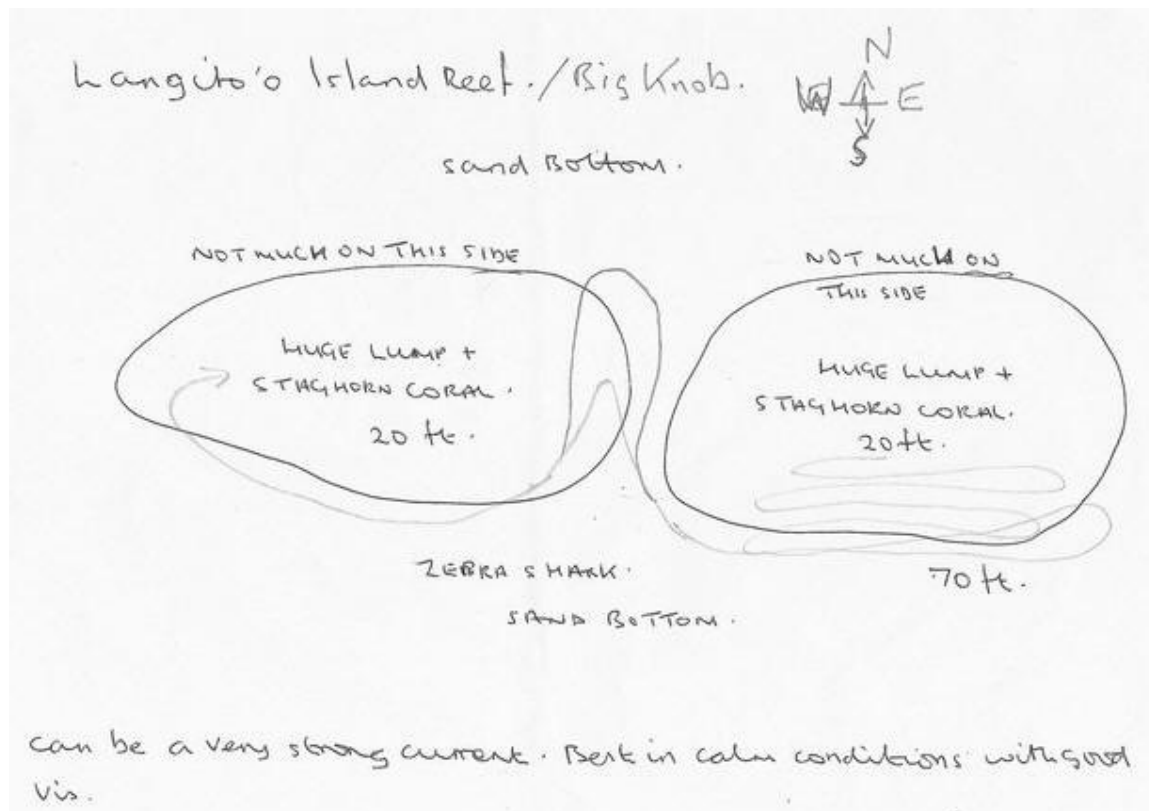 Langito'o Island Reef./Big Knob.
N
W E
S
sand Bottom.
NOT MUCH ON THIS SIDE
NOT MUCH ON
THIS SIDE
HUGE LUMP +
STAGHORN CORAL.
20 ft.
HUGE LUMP +
STAGHORN CORAL.
20 ft.
ZEBRA SHARK.
70 ft.
SAND BOTTOM.
can be a very strong current. Best in calm conditions with good
vis.